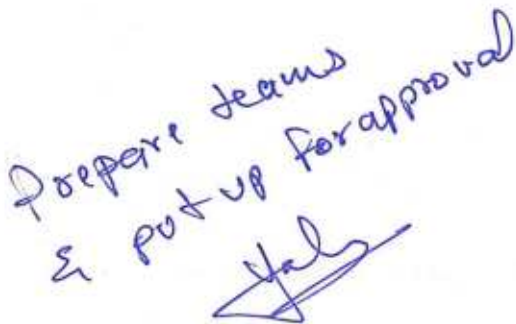 Prepare teams
& put up for approval